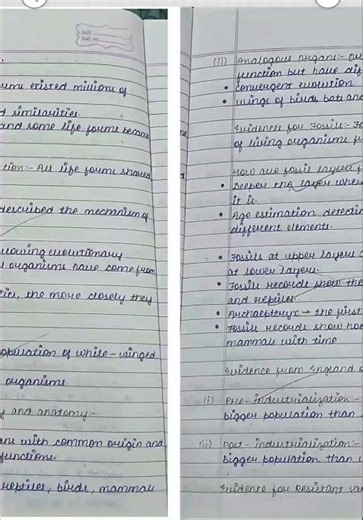 DATE
existed millions of
similarities.
and some life forms became
tion:- All life forms shared
described the mechanism of
evolutionary
organisms have come from
the more closely they
population of white-winged
organisms
and anatomy:-
with common origin and
functions.
reptiles, birds, mammals
(ii) Analogous organs:-
function but have dif
• convergent evolution
• wings of birds bats and
Evidence for Fossils:-
of living organisms
How are fossil layers
• Deeper the layer
it is
• Age estimation
different elements.
• Fossils at upper layers
at lower layers.
• Fossils records show the
and reptiles
• Archaeopteryx → the first
• Fossils records show how
mammals with time
Evidence from England
(i) Pre-industrialization:-
bigger population than
(ii) Post-industrialization:-
bigger population than
Evidence for Resistant